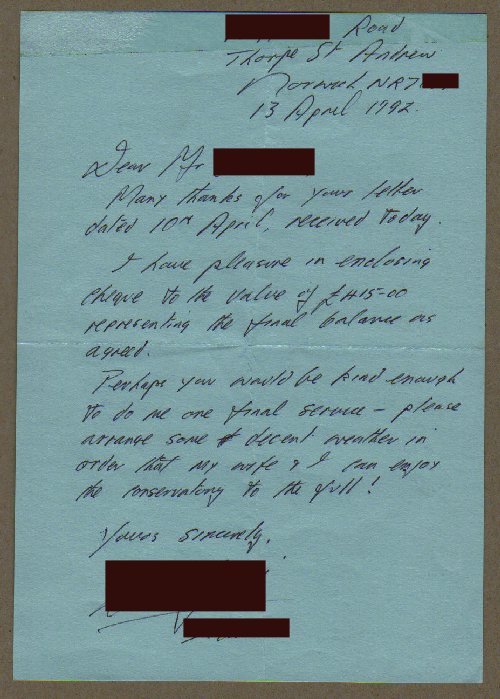 Road
Thorpe St Andrew
Norwich NR7
13 April 1992.
Dear Mr
Many thanks for your letter
dated 10th April, received today.
I have pleasure in enclosing
cheque to the value of £415-00
representing the final balance as
agreed.
Perhaps you would be kind enough
to do me one final service - please
arrange some decent weather in
order that my wife & I can enjoy
the conservatory to the full!
Yours sincerely,